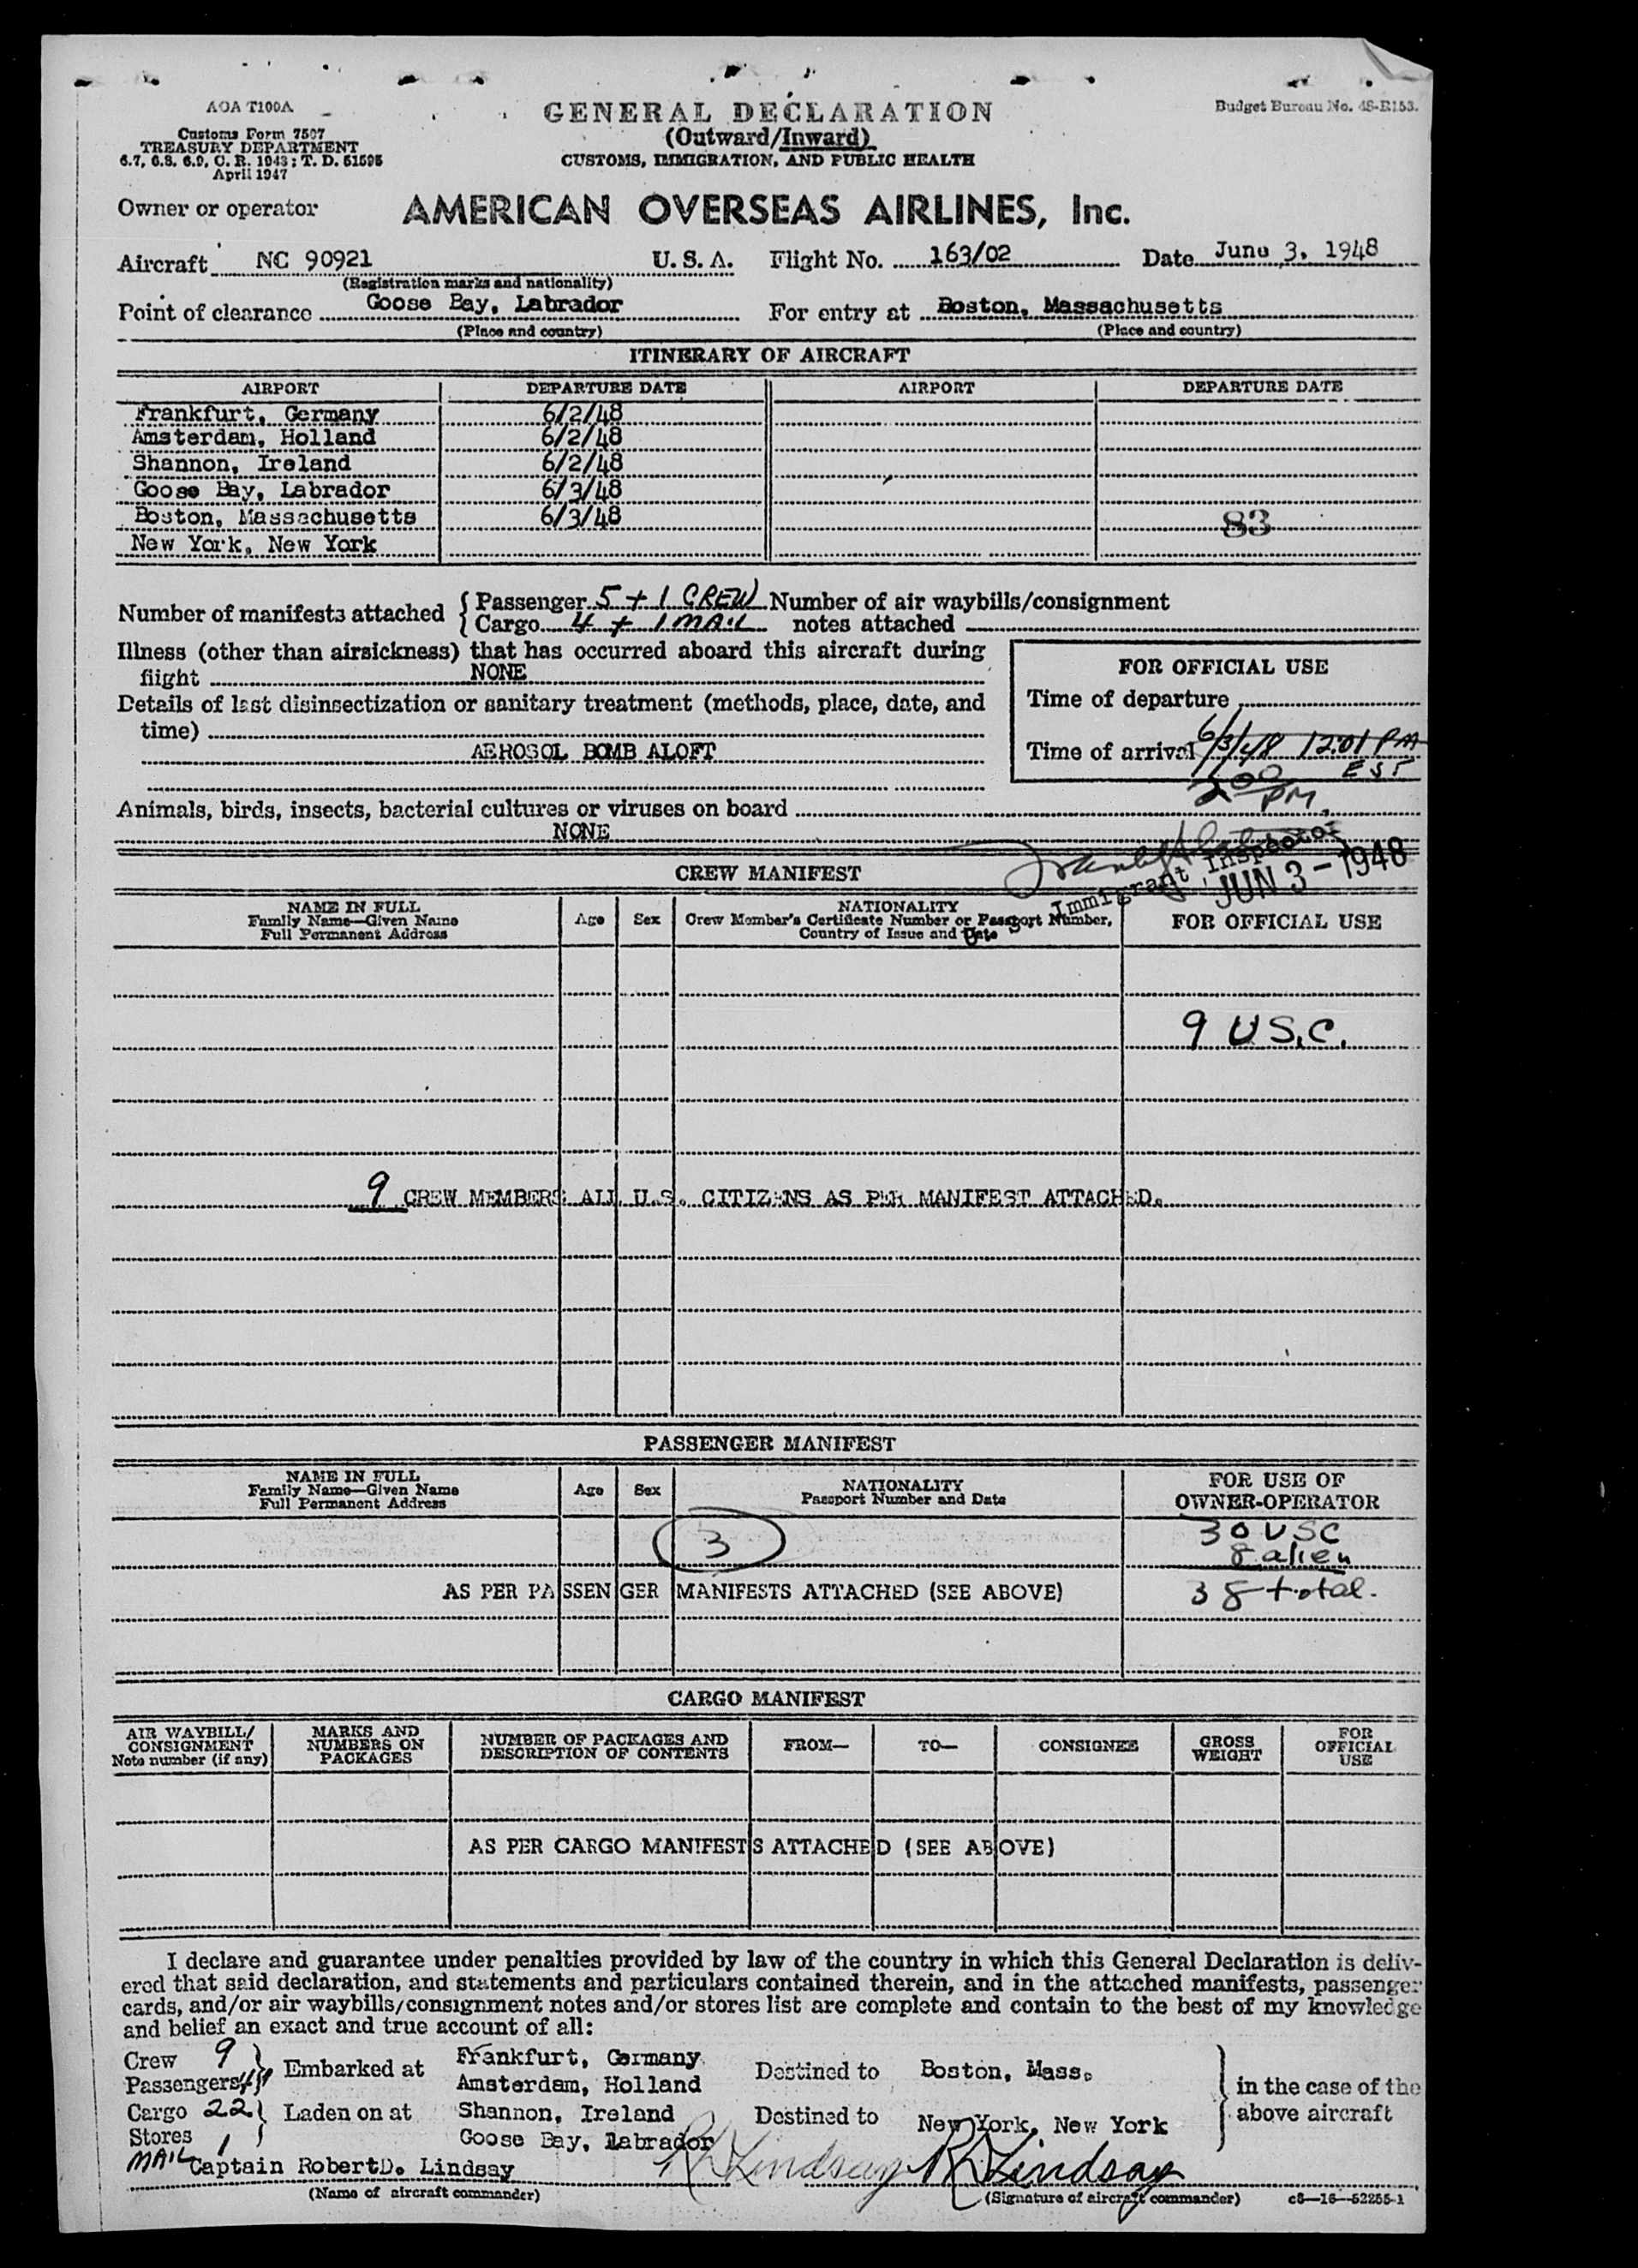 AOA T100A
Customs Form 7507
TREASURY DEPARTMENT
6.7, 6.8, 6.9, C. R. 1943; T. D. 51595
April 1947
GENERAL DECLARATION
(Outward/Inward)
CUSTOMS, IMMIGRATION, AND PUBLIC HEALTH
Budget Bureau No. 48-R153.
Owner or operator AMERICAN OVERSEAS AIRLINES, Inc.
Aircraft NC 90921 U. S. A. Flight No. 163/02 Date June 3, 1948
(Registration marks and nationality)
Point of clearance Goose Bay, Labrador For entry at Boston, Massachusetts
(Place and country) (Place and country)
ITINERARY OF AIRCRAFT
AIRPORT DEPARTURE DATE AIRPORT DEPARTURE DATE
Frankfurt, Germany 6/2/48
Amsterdam, Holland 6/2/48
Shannon, Ireland 6/2/48
Goose Bay, Labrador 6/3/48
Boston, Massachusetts 6/3/48 83
New York, New York
Number of manifests attached { Passenger 5 + 1 CREW Number of air waybills/consignment
Cargo 4 + 1 MAIL notes attached
Illness (other than airsickness) that has occurred aboard this aircraft during
flight NONE
Details of last disinsectization or sanitary treatment (methods, place, date, and
time)
AEROSOL BOMB ALOFT
FOR OFFICIAL USE
Time of departure
Time of arrival 6/3/48 12:01 PM
EST
2 00 PM
Animals, birds, insects, bacterial cultures or viruses on board
NONE
Immigrant Inspector
JUN 3 - 1948
CREW MANIFEST
NAME IN FULL
Family Name—Given Name
Full Permanent Address
Age Sex
NATIONALITY
Crew Member's Certificate Number or Passport Number,
Country of Issue and Date
FOR OFFICIAL USE
9 U.S.C.
9 CREW MEMBERS ALL U.S. CITIZENS AS PER MANIFEST ATTACHED.
PASSENGER MANIFEST
NAME IN FULL
Family Name—Given Name
Full Permanent Address
Age Sex
NATIONALITY
Passport Number and Date
FOR USE OF
OWNER-OPERATOR
3
30 USC
8 alien
AS PER PASSENGER MANIFESTS ATTACHED (SEE ABOVE) 38 total.
CARGO MANIFEST
AIR WAYBILL/
CONSIGNMENT
Note number (if any)
MARKS AND
NUMBERS ON
PACKAGES
NUMBER OF PACKAGES AND
DESCRIPTION OF CONTENTS
FROM— TO— CONSIGNEE
GROSS
WEIGHT
FOR
OFFICIAL
USE
AS PER CARGO MANIFESTS ATTACHED (SEE ABOVE)
I declare and guarantee under penalties provided by law of the country in which this General Declaration is deliv-
ered that said declaration, and statements and particulars contained therein, and in the attached manifests, passenger
cards, and/or air waybills/consignment notes and/or stores list are complete and contain to the best of my knowledge
and belief an exact and true account of all:
Crew 9
Passengers
Embarked at
Cargo 22
Stores 1
MAIL
Laden on at
Frankfurt, Germany
Amsterdam, Holland
Shannon, Ireland
Goose Bay, Labrador
Destined to Boston, Mass.
Destined to New York, New York
in the case of the
above aircraft
Captain Robert D. Lindsay RD Lindsay RD Lindsay
(Name of aircraft commander) (Signature of aircraft commander) c8—16—52255-1